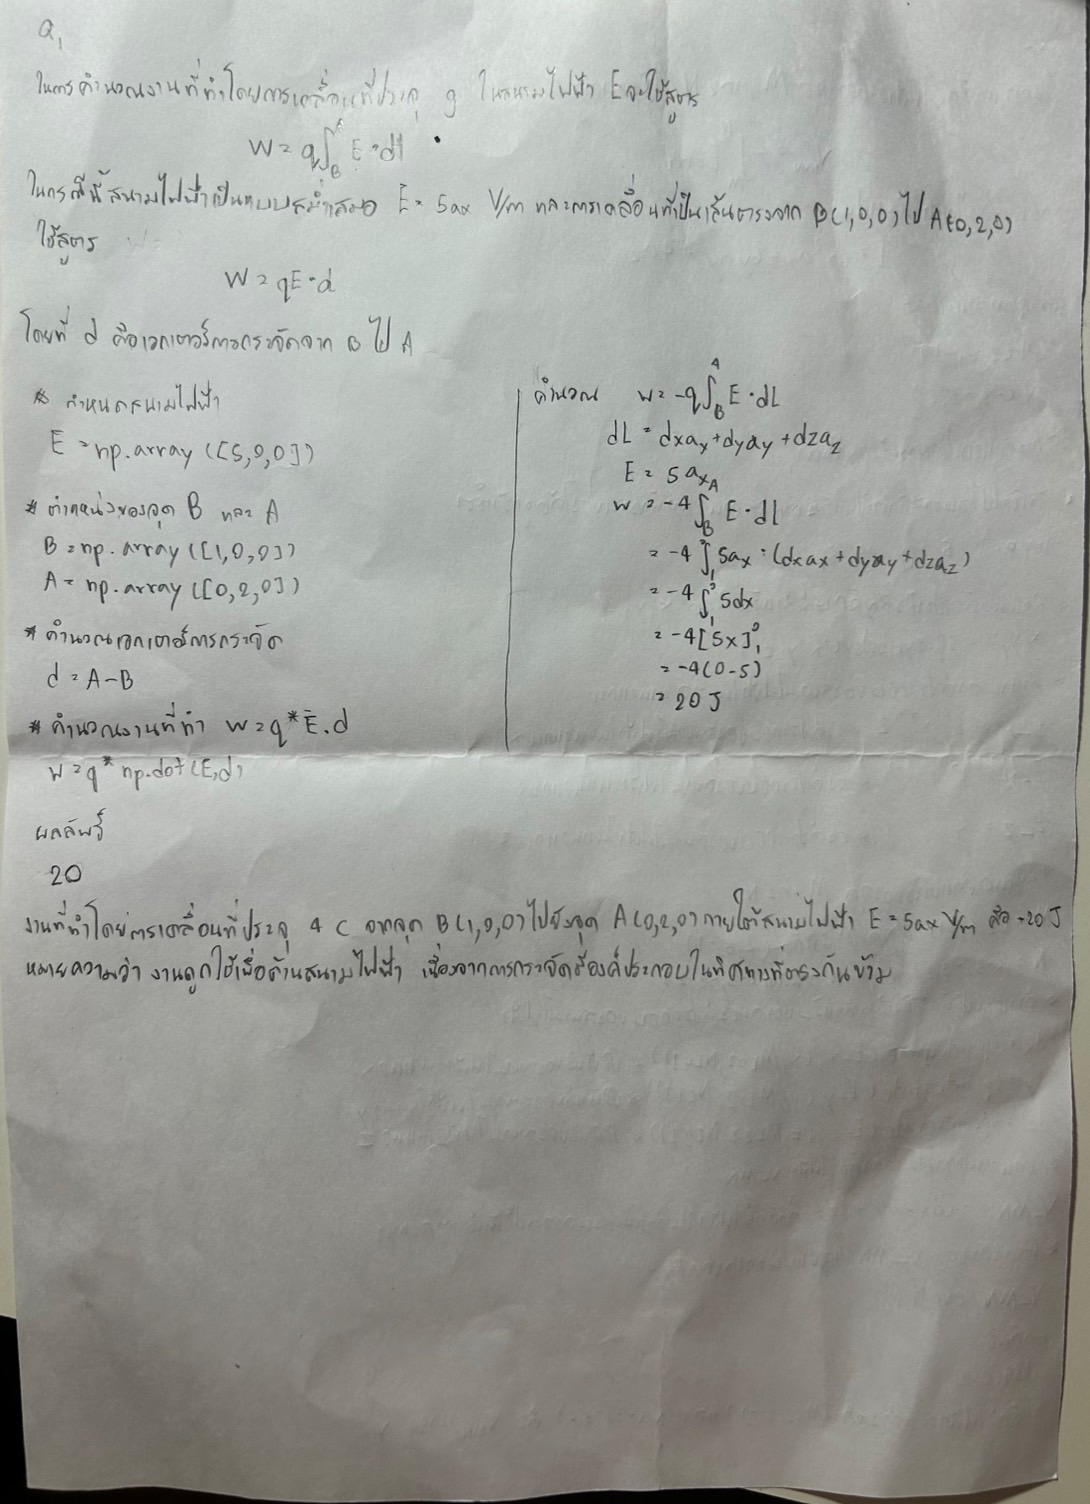 Q1
ในการคำนวณงานที่ทำโดยการเคลื่อนที่ประจุ q ในสนามไฟฟ้า E จะใช้สูตร
W = q∫_B^A E·dl
ในกรณีนี้สนามไฟฟ้าเป็นแบบสม่ำเสมอ E = 5ax V/m และการเคลื่อนที่เป็นเส้นตรงจาก B(1,0,0) ไป A(0,2,0)
ใช้สูตร
W = qE·d
โดยที่ d คือเวกเตอร์การกระจัดจาก B ไป A
# กำหนดสนามไฟฟ้า
E = np.array([5,0,0])
# ตำแหน่งของจุด B และ A
B = np.array([1,0,0])
A = np.array([0,2,0])
# คำนวณเวกเตอร์การกระจัด
d = A-B
# คำนวณงานที่ทำ W = q*E.d
W = q* np.dot(E,d)
ผลลัพธ์
20
คำนวณ W = -q∫_B^A E·dL
dL = dxax+dyay+dzaz
E = 5ax
W = -4∫_B^A E·dL
= -4∫_1^0 5ax·(dxax+dyay+dzaz)
= -4∫_1^0 5dx
= -4[5x]_1^0
= -4(0-5)
= 20 J
งานที่ทำโดยการเคลื่อนที่ประจุ 4 C จากจุด B(1,0,0) ไปยังจุด A(0,2,0) ภายใต้สนามไฟฟ้า E = 5ax V/m คือ -20 J
หมายความว่า งานถูกใช้เพื่อต้านสนามไฟฟ้า เนื่องจากการกระจัดมีองค์ประกอบในทิศทางที่ตรงกันข้าม